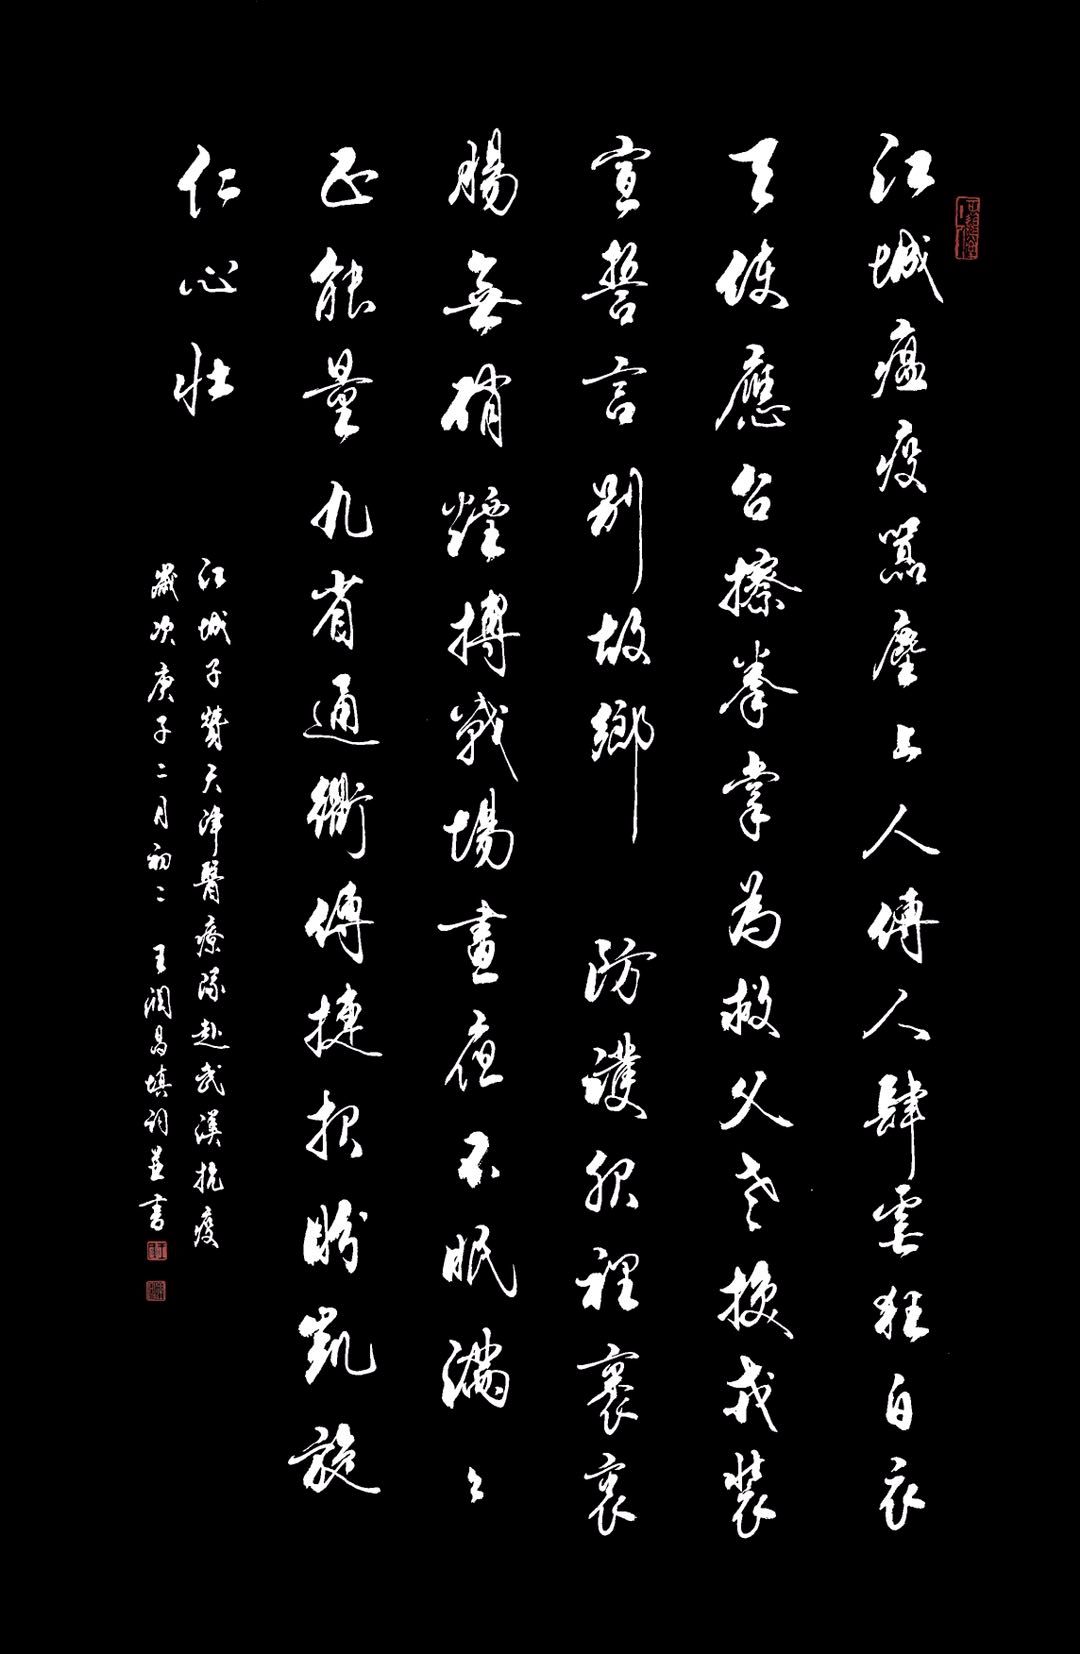 江城瘟疫嚣塵上人傳人肆虐狂白衣
天使應召擦拳掌為救父老換戎裝
宣誓言别故鄉 防護服裡裹衷
腸無硝煙搏戰場晝夜不眠滿〻
正能量九省通衢傳捷報盼凱旋
仁心壯
江城子贊天津醫療隊赴武漢抗疫
歲次庚子二月初二 王潤昌填詞並書